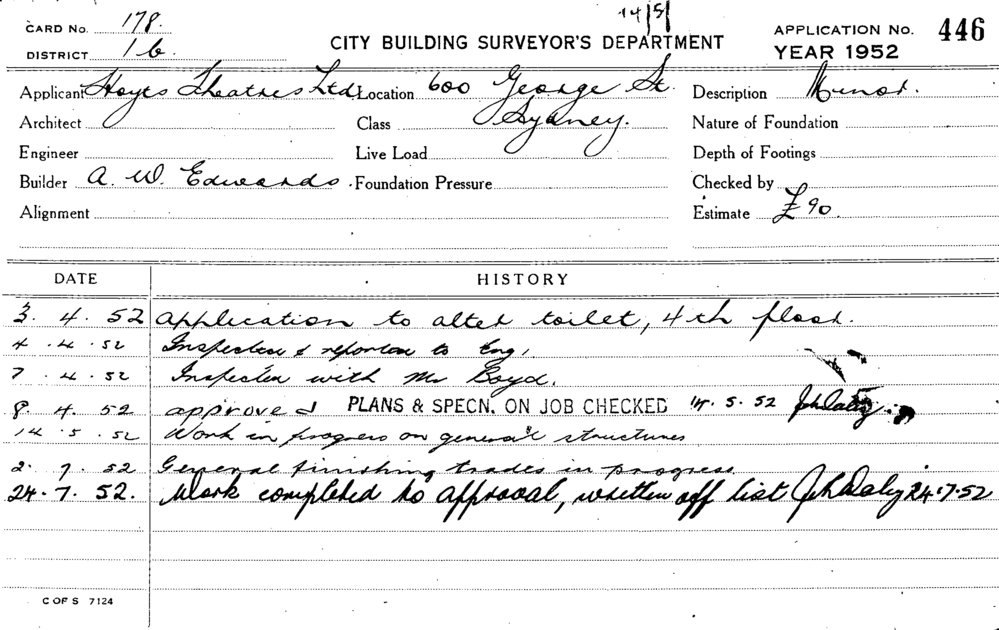 14/5/
CARD NO. 178.
CITY BUILDING SURVEYOR'S DEPARTMENT
APPLICATION NO. 446
DISTRICT 1b.
YEAR 1952
Applicant Hoyts Theatres Ltd. Location 600 George St. Description Minor.
Architect Class Sydney. Nature of Foundation
Engineer Live Load Depth of Footings
Builder A. W. Edwards. Foundation Pressure Checked by
Alignment Estimate £90.
DATE HISTORY
3. 4. 52 Application to alter toilet, 4th floor.
4. 4. 52 Inspected & reported to Eng.
7. 4. 52 Inspected with Mr Boyd.
8. 4. 52 approved PLANS & SPECN. ON JOB CHECKED 14. 5. 52 JohDaly
14. 5. 52 Work in progress on general structures
2. 7. 52 General finishing trades in progress
24. 7. 52. Work completed to approval, written off list JohDaly 24.7.52
C OF S 7124